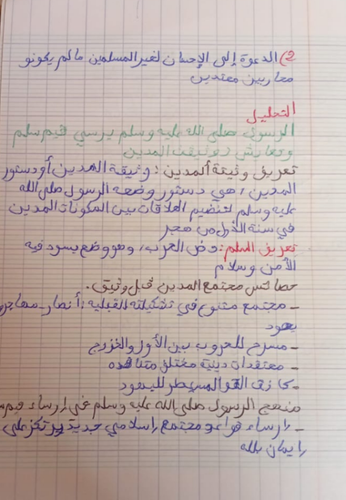 2) الدعوة إلى الإحسان لغير المسلمين ما لم يكونو
محاربين معتدين
التحليل
الرسول صلى الله عليه وسلم يرسي قيم سلم
وتعايش توثيقت المدين
تعريف وثيقة المدين: وثيقة المدين أو دستور
المدين، هي دستور وضعه الرسول صلى الله
عليه وسلم لتنضيم العلاقات بين المكونات المدين
في سنة الأولى من هجر
تعريف السلم: ضض الحرب، وهو وضع يسود فيه
الأمن وسلام
خصائص مجتمع المدين قبل وثيق.
- مجتمع متنوع في تشكيلته القبلية: أنصار - مهاجر
يهود
- مسرح للحروب بين الأوس والخزرج
- معتقدات دينية مختلف
- كانت القو المسيطر لليهود
منهج الرسول صلى الله عليه وسلم في إرساء قيم
- إرساء قواعد مجتمع إسلامي جديد يرتكز على
إيمان بلله